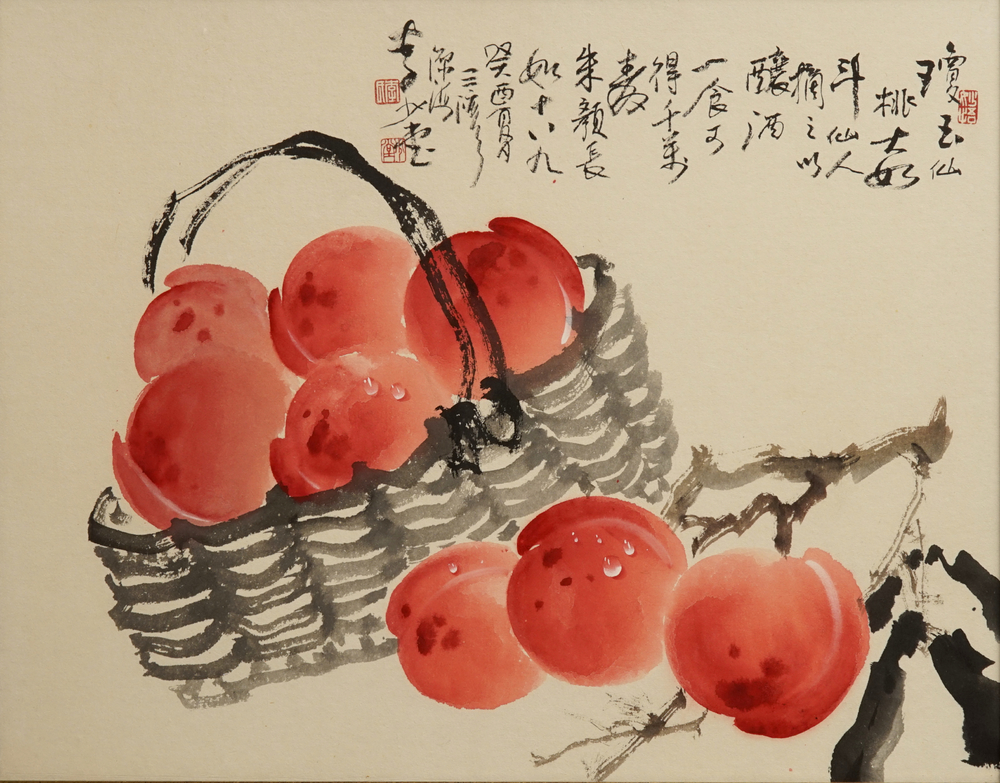 瓊玉仙
桃大如
斗仙人
摘之以
釀酒
一食可
得千萬
壽
朱顏長
如十八九
癸酉夏月